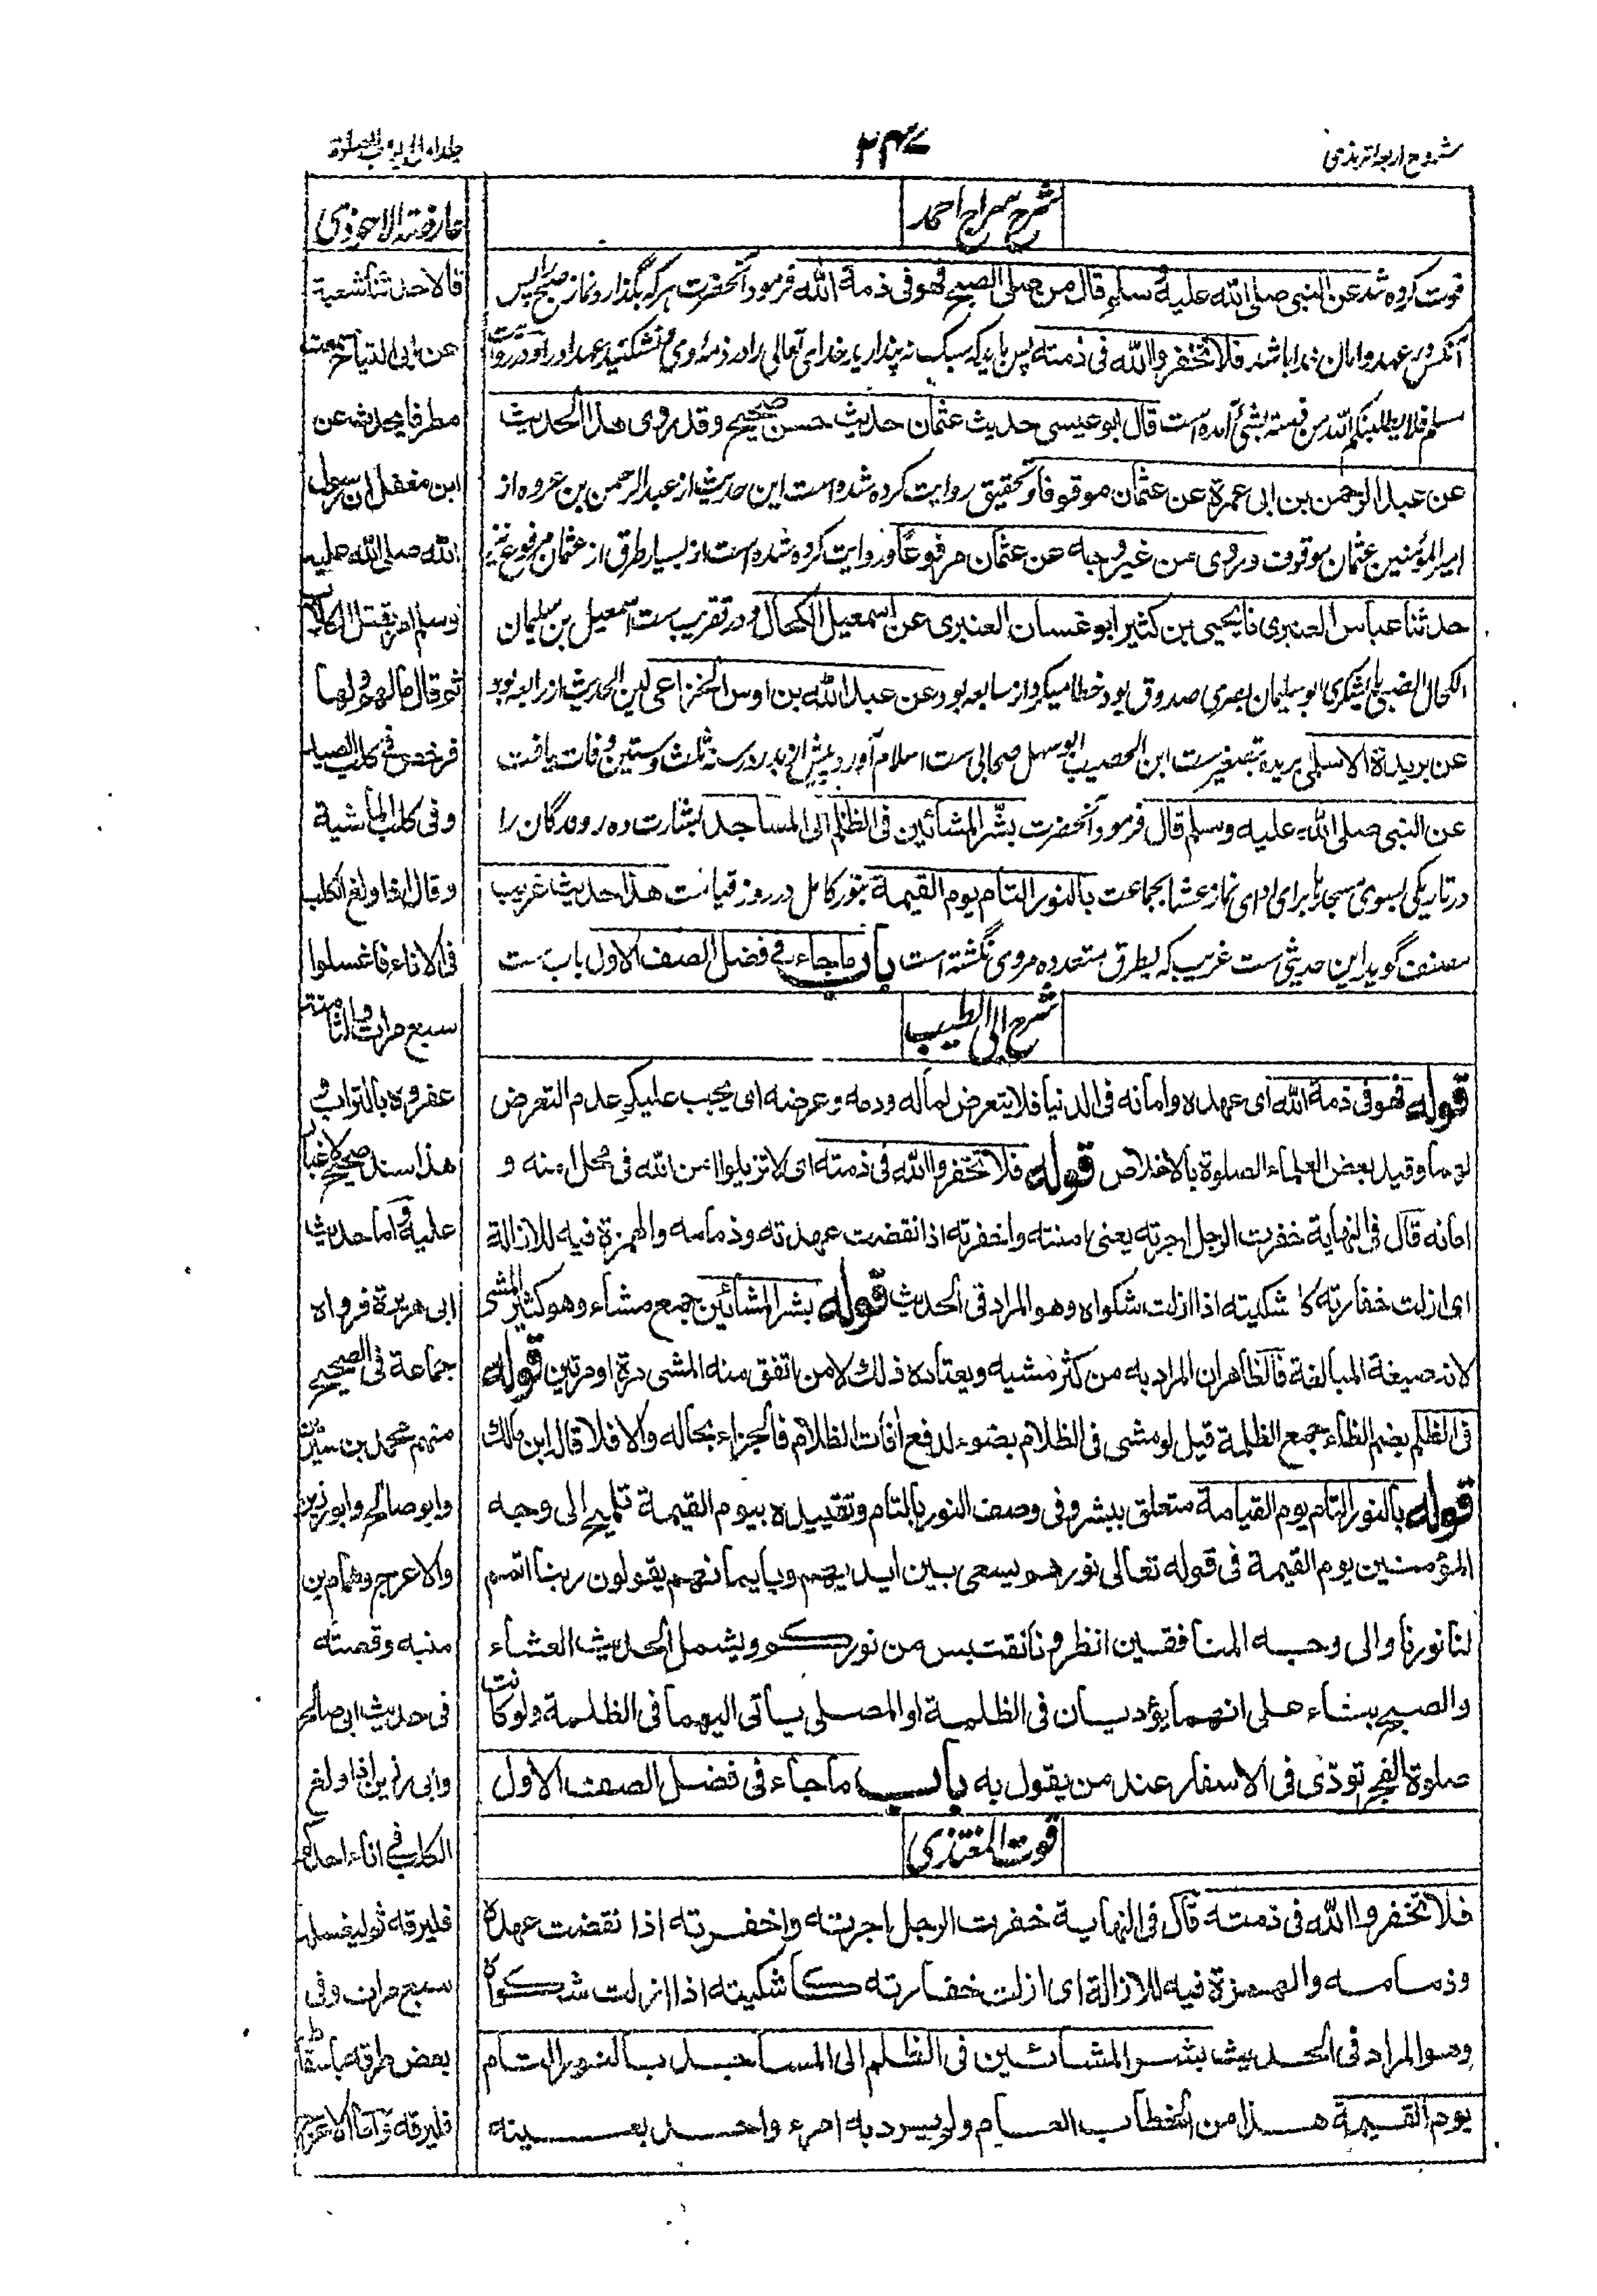 شروح اربعه ترمذی
۲۴۷
جلد اول ابواب الصلوة
شرح سراج احمد
فوت کرده شد عن النبی صلی الله علیه وسلم قال من صلی الصبح فهو فی ذمة الله فرمود آنحضرت هر که بگذارد نماز صبح را پس
آنکس در عهد و امان خدا باشد فلا تخفروا الله فی ذمته پس باید که سبک نه پندارید خدای تعالی را در ذمه او و نشکنید عهد او را و در روایت
مسلم فلا یطلبنکم الله من ذمته بشئ آمده است قال ابو عیسی حدیث عثمان حدیث حسن صحیح وقد روی هذا الحدیث
عن عبد الرحمن بن ابی عمرة عن عثمان موقوفا و تحقیق روایت کرده شده است این حدیث از عبد الرحمن بن عروه از
امیر المؤمنین عثمان موقوف و روی من غیر وجه عن عثمان مرفوعًا و روایت کرده شده است از بسیار طرق از عثمان مرفوع نیز
حدثنا عباس العنبری نا یحیی بن کثیر ابو غسان العنبری عن اسمعیل الکحال و در تقریب ست اسمعیل بن سلیمان
الکحال الضبی یا الیشکری ابو سلیمان بصری صدوق بود خطا میکرد از سابعه بود عن عبد الله بن اوس الخزاعی لین الحدیث از رابعه بود
عن بریدة الاسلمی بریده بتصغیر ست ابن الحصیب ابو سهل صحابی ست اسلام آورد پیش از بدر در سنه ثلث وستین وفات یافت
عن النبی صلی الله علیه وسلم قال فرمود آنحضرت بشّر المشائین فی الظلم الی المساجد بشارت ده روندگان را
در تاریکی بسوی مسجدها برای ادای نماز عشا بجماعت بالنور التام یوم القیمة بنور کامل در روز قیامت هذا حدیث غریب
مصنف گوید این حدیثی ست غریب که بطرق متعدده مروی نگشته است باب ما جاء فی فضل الصف الاول باب ست
شرح ابی الطیب
قوله فهو فی ذمة الله ای عهده وامانه فی الدنیا فلا یتعرض لماله ودمه وعرضه ای یجب علیکم عدم التعرض
لهما وقید بعض العلماء الصلوة بالاخلاص قوله فلا تخفروا الله فی ذمته ای لا تزیلوا امن الله فی محل امنه و
امانه قال فی النهایة خفرت الرجل اجرته یعنی امنته واخفرته اذا نقضت عهدته وذمامه والهمزة فیه للازالة
ای ازلت خفارته کا شکیته اذا ازلت شکواه وهو المراد فی الحدیث قوله بشر المشائین جمع مشاء وهو کثیر المشی
لانه صیغة المبالغة فالظاهر ان المراد به من کثر مشیه ویعتاده ذلك لا من اتفق منه المشی مرة او مرتین قوله
فی الظلم بضم الظاء جمع الظلمة قیل لو مشی فی الظلام بضوء لدفع افات الظلام فالجزاء بحاله والا فلا قاله ابن مالك
قوله بالنور التام یوم القیامة متعلق ببشر وفی وصف النور بالتام وتقییده بیوم القیمة تلمیح الی وجه
المؤمنین یوم القیمة فی قوله تعالی نورهم یسعی بین ایدیهم وبایمانهم یقولون ربنا اتمم
لنا نورنا والی وجه المنافقین انظرونا نقتبس من نورکم ویشمل الحدیث العشاء
والصبح بناء علی انهما یؤدیان فی الظلمة او المصلی یأتی الیهما فی الظلمة ولو کانت
صلوة الفجر تودی فی الاسفار عند من یقول به باب ما جاء فی فضل الصف الاول
قوت المغتذی
فلا تخفروا الله فی ذمته قال فی النهایة خفرت الرجل اجرته واخفرته اذا نقضت عهده
وذمامه والهمزة فیه للازالة ای ازلت خفارته کاشکیته اذا ازلت شکواه
وهو المراد فی الحدیث بشر المشائین فی الظلم الی المساجد بالنور التام
یوم القیمة هذا من الخطاب العام ولم یرد به امرء واحد بعینه
عارضة الاحوذی
قالا حدثنا شعبة
عن ابی التیاح سمعت
مطرفا یحدث عن
ابن مغفل ان رسول
الله صلی الله علیه
وسلم امر بقتل الکلاب
ثم قال مالهم ولها
فرخص فی کلب الصید
وفی کلب الماشیة
وقال اذا ولغ الکلب
فی الاناء فاغسلوا
سبع مرات والثامنة
عفروه بالتراب و
هذا سند صحیح لا غبار
علیه واما حدیث
ابی هریرة فرواه
جماعة فی الصحیح
منهم محمد بن سیرین
وابو صالح وابو رزین
والاعرج وهمام بن
منبه وقصته
فی حدیث ابی صالح
وابی رزین اذا ولغ
الکلب فی اناء احدکم
فلیرقه ثم لیغسله
سبع مرات وفی
بعض طرقه باسقاط
فلیرقه واما الاعرج